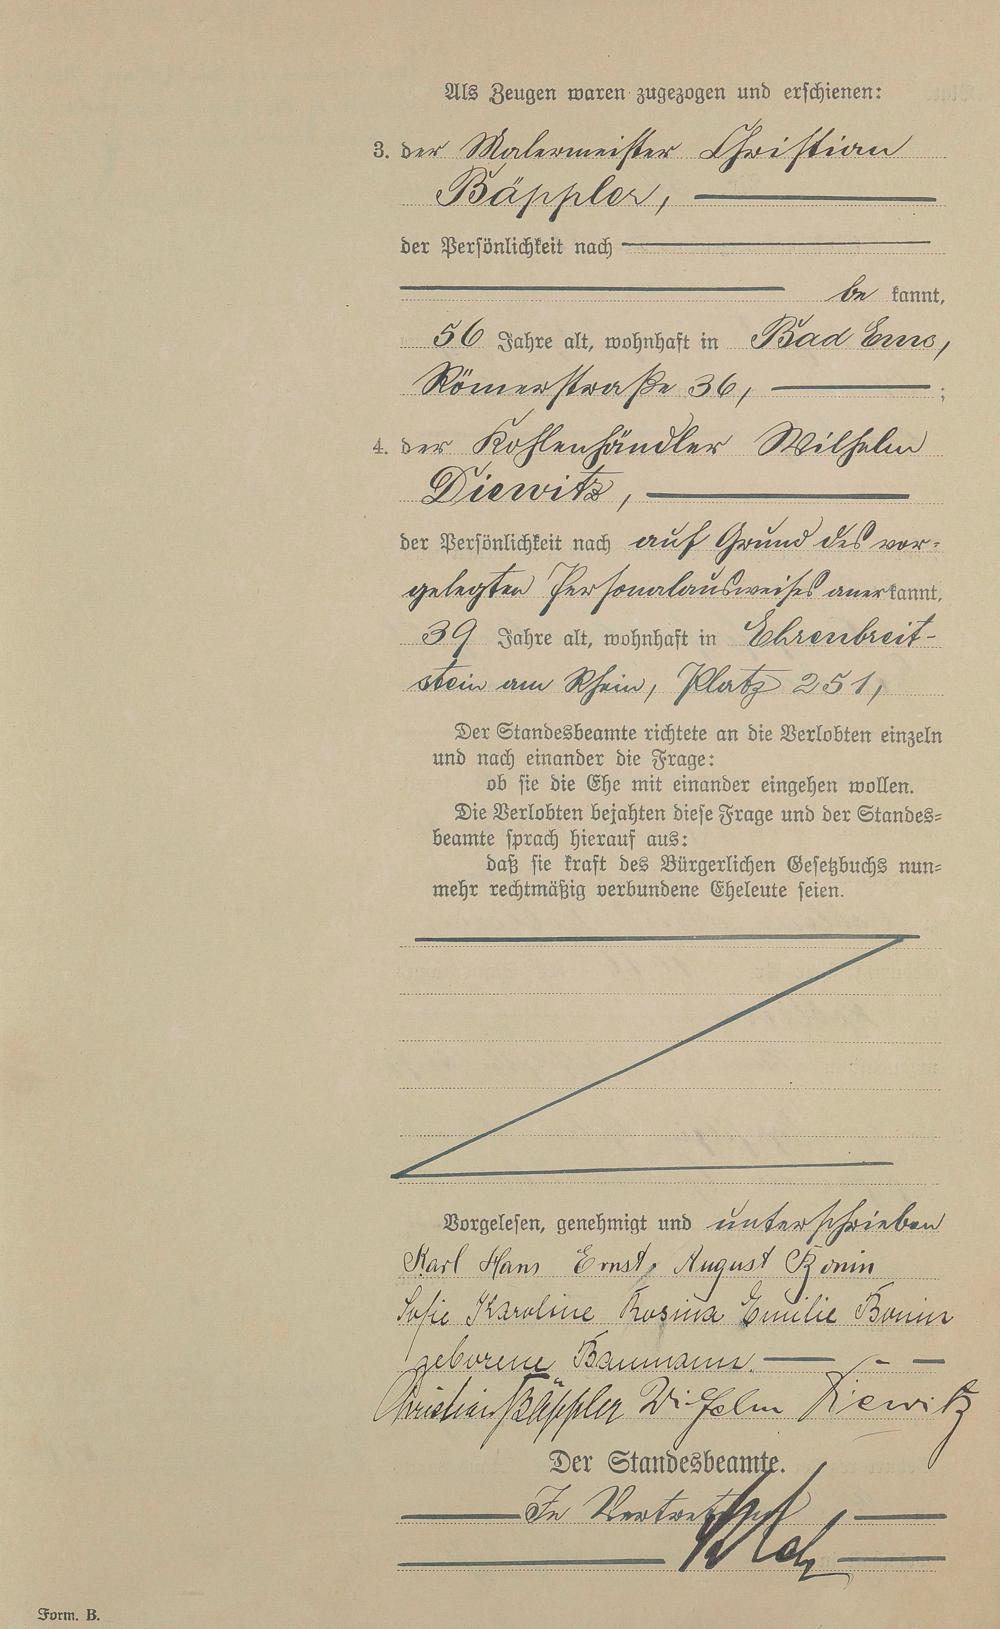 Als Zeugen waren zugezogen und erschienen:
3. der Malermeister Christian
Bäppler,
der Persönlichkeit nach
be kannt,
56 Jahre alt, wohnhaft in Bad Ems,
Römerstraße 36, ;
4. der Kohlenhändler Wilhelm
Diewitz,
der Persönlichkeit nach auf Grund des vor-
gelegten Personalausweises anerkannt,
39 Jahre alt, wohnhaft in Ehrenbreit-
stein am Rhein, Platz 251,
Der Standesbeamte richtete an die Verlobten einzeln
und nach einander die Frage:
ob sie die Ehe mit einander eingehen wollen.
Die Verlobten bejahten diese Frage und der Standes=
beamte sprach hierauf aus:
daß sie kraft des Bürgerlichen Gesetzbuchs nun=
mehr rechtmäßig verbundene Eheleute seien.
Vorgelesen, genehmigt und unterschrieben
Karl Hans Ernst August Bonin
Sofie Karoline Rosina Emilie Bonin
geborene Baumann.
Christian Bäppler Wilhelm Diewitz
Der Standesbeamte.
In Vertretung
Form. B.